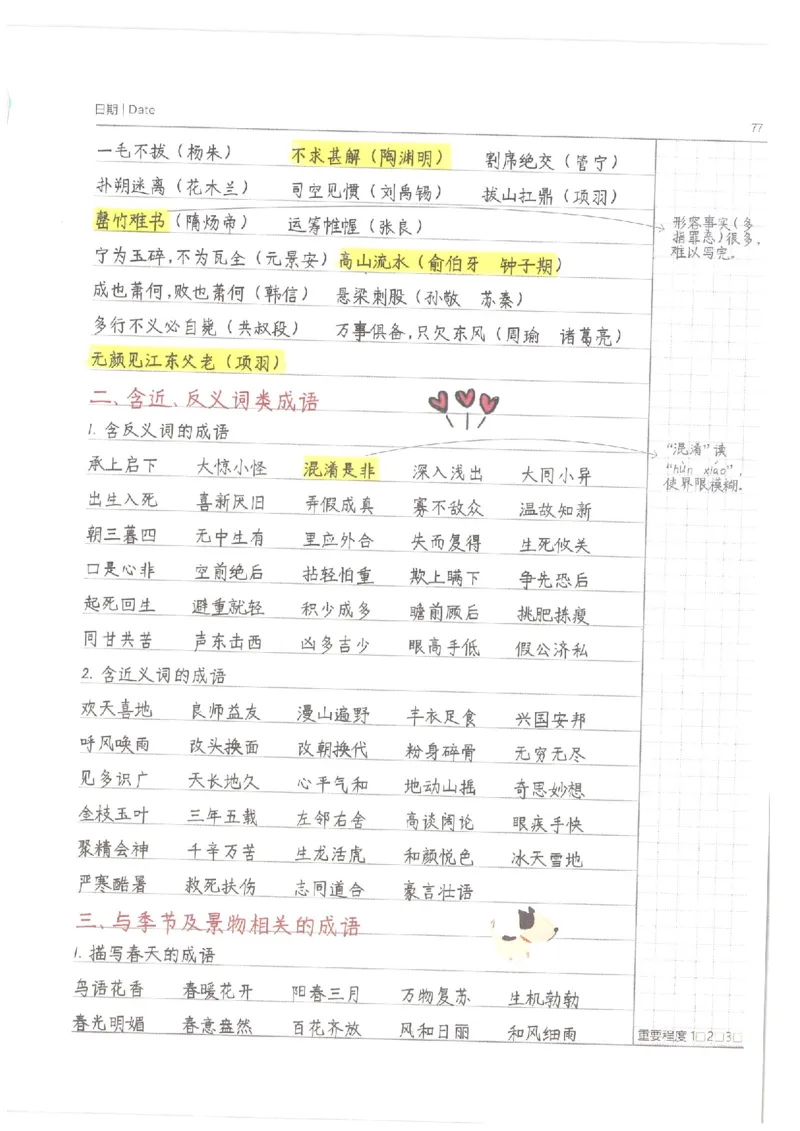 日期 | Date
77
一毛不拔（杨朱） 不求甚解（陶渊明） 割席绝交（管宁）
扑朔迷离（花木兰） 司空见惯（刘禹锡） 拔山扛鼎（项羽）
罄竹难书（隋炀帝） 运筹帷幄（张良）
形容事实（多
指罪恶）很多，
难以写完。
宁为玉碎，不为瓦全（元景安） 高山流水（俞伯牙 钟子期）
成也萧何，败也萧何（韩信） 悬梁刺股（孙敬 苏秦）
多行不义必自毙（共叔段） 万事俱备，只欠东风（周瑜 诸葛亮）
无颜见江东父老（项羽）
二、含近、反义词类成语
1. 含反义词的成语
“混淆”读
“hùn xiáo”，
使界限模糊．
承上启下 大惊小怪 混淆是非 深入浅出 大同小异
出生入死 喜新厌旧 弄假成真 寡不敌众 温故知新
朝三暮四 无中生有 里应外合 失而复得 生死攸关
口是心非 空前绝后 拈轻怕重 欺上瞒下 争先恐后
起死回生 避重就轻 积少成多 瞻前顾后 挑肥拣瘦
同甘共苦 声东击西 凶多吉少 眼高手低 假公济私
2. 含近义词的成语
欢天喜地 良师益友 漫山遍野 丰衣足食 兴国安邦
呼风唤雨 改头换面 改朝换代 粉身碎骨 无穷无尽
见多识广 天长地久 心平气和 地动山摇 奇思妙想
金枝玉叶 三年五载 左邻右舍 高谈阔论 眼疾手快
聚精会神 千辛万苦 生龙活虎 和颜悦色 冰天雪地
严寒酷暑 救死扶伤 志同道合 豪言壮语
三、与季节及景物相关的成语
1. 描写春天的成语
鸟语花香 春暖花开 阳春三月 万物复苏 生机勃勃
春光明媚 春意盎然 百花齐放 风和日丽 和风细雨
重要程度 1□2□3□